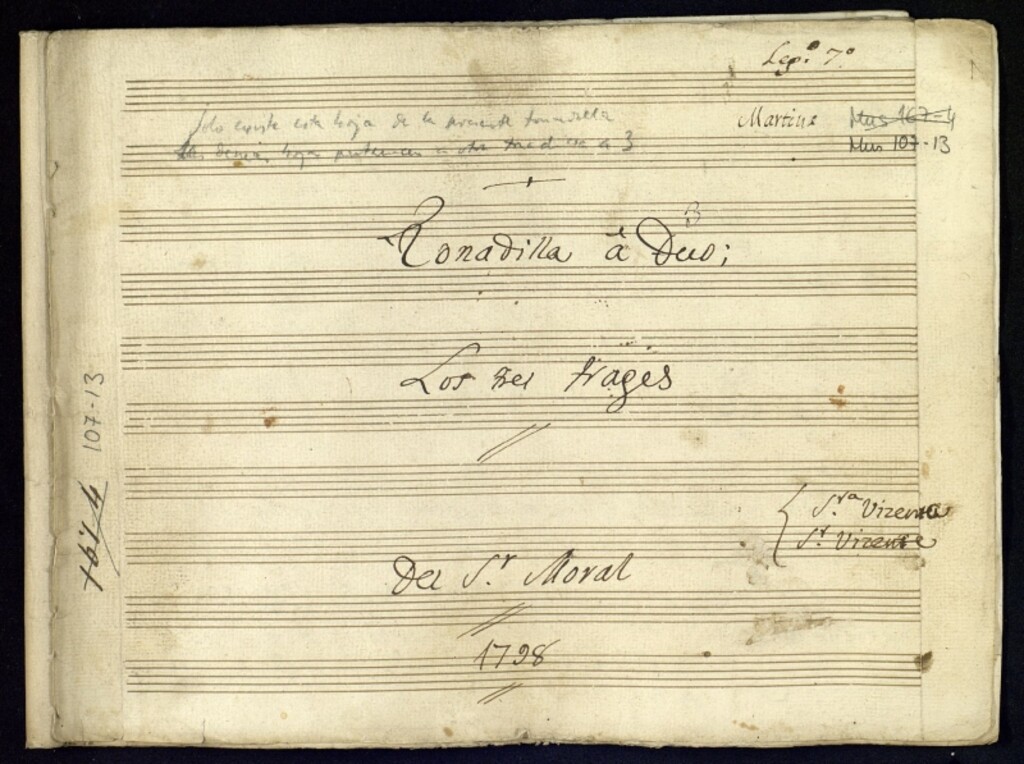 Leg.º 7.º
Martinz
Mus 167-4
Mus 107-13
Solo existe esta hoja de la presente tonadilla
las demás hojas pertenecen a otra tonadilla a 3
Tonadilla â Duo;
Los tres trages
S.ra Vizenta
S.r Vizente
Del S.r Moral
1798
107-13
167-4